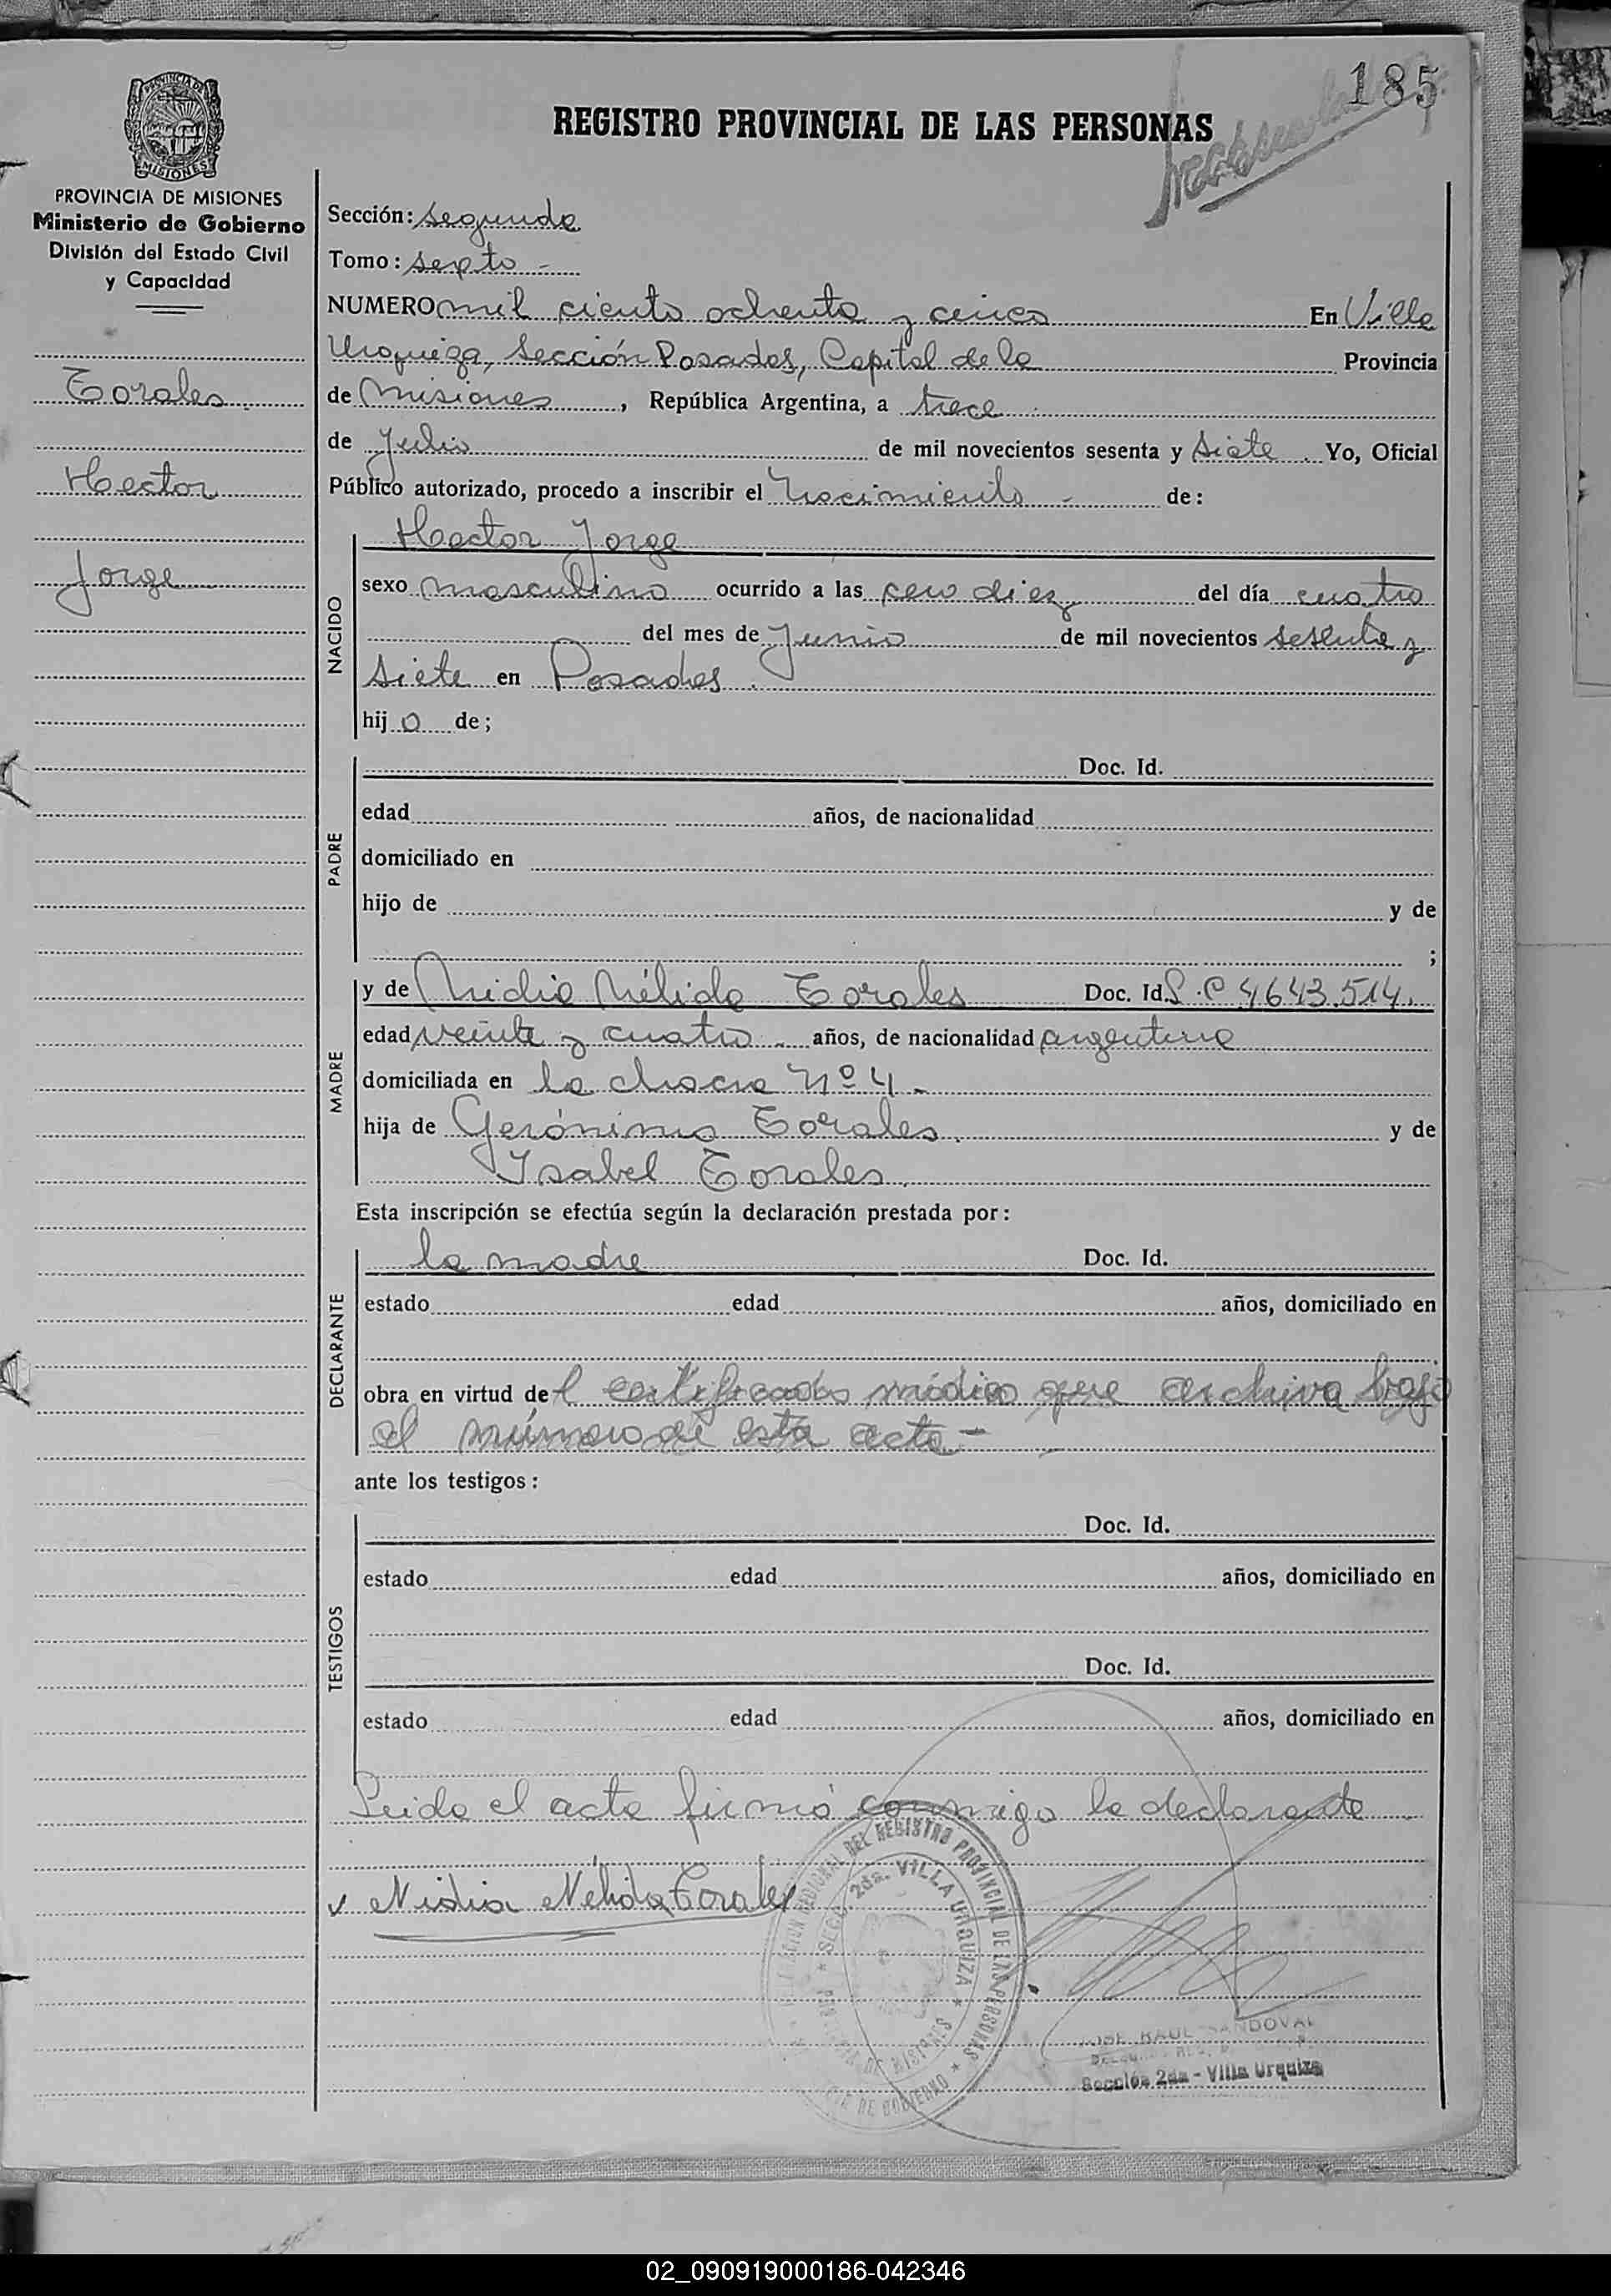 185
REGISTRO PROVINCIAL DE LAS PERSONAS
PROVINCIA DE MISIONES
Ministerio de Gobierno
División del Estado Civil
y Capacidad
Torales
Hector
Jorge
Sección: segunda
Tomo: septo -
NUMERO mil ciento ochenta y cinco En Villa
Urquiza, Sección Posadas, Capital de la Provincia
de Misiones, República Argentina, a trece
de Julio de mil novecientos sesenta y siete. Yo, Oficial
Público autorizado, procedo a inscribir el nacimiento - de:
NACIDO
Hector Jorge
sexo masculino ocurrido a las cero diez del día cuatro
del mes de Junio de mil novecientos sesenta y
siete en Posadas.
hijo de;
PADRE
Doc. Id.
edad años, de nacionalidad
domiciliado en
hijo de y de
;
MADRE
y de Nidia Nélida Torales Doc. Id. L.C 4643.514.
edad veinte y cuatro años, de nacionalidad argentina
domiciliada en la chacra Nº 4.
hija de Gerónimo Torales. y de
Isabel Torales.
Esta inscripción se efectúa según la declaración prestada por:
DECLARANTE
la madre Doc. Id.
estado edad años, domiciliado en
obra en virtud del certificado médico que archiva bajo
el número de esta acta-
ante los testigos:
TESTIGOS
Doc. Id.
estado edad años, domiciliado en
Doc. Id.
estado edad años, domiciliado en
Leida el acta firmó conmigo la declarante
Nidia Nélida Torales
DEL REGISTRO PROVINCIAL DE LAS PERSONAS
SECC. 2da. VILLA URQUIZA
DE MISIONES
DE GOBIERNO
JOSE RAUL SANDOVAL
Sección 2da - Villa Urquiza
02_090919000186-042346